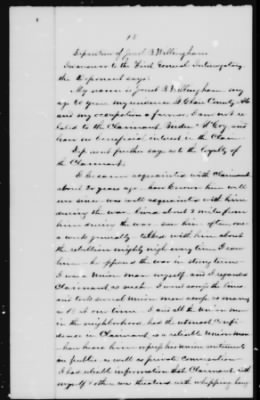 Deposition of Jared B Wellingham
In answer to the Third General Interrogatory
the Deponent says:
My name is Jared B Wellingham my
age 60 years my residence St Clair County Ala
and my occupation a farmer I am not re
lated to the Claimant and
have no beneficial interest in the Claim
Deponent further says as to the loyalty of
the Claimant.
I became acquainted with Claimant
about 20 years ago have known him well
ever since was well acquainted with him
during the war lived about 2 miles from
him during the war saw him often once
a week generally talked with him about
the rebellion mighty nigh every time I saw
him he opposed the war in strong terms
I was a Union man myself and I regarded
Claimant as such I went through the lines
and told several Union men as many
as 8 at one time I and all the Union men
in the neighborhood had the utmost confi
dence in Claimant as a reliable Union man
have heard him express his union sentiments
in public as well as private conversation
I had reliable information that Claimant with
myself & others was threatened with whipping hung